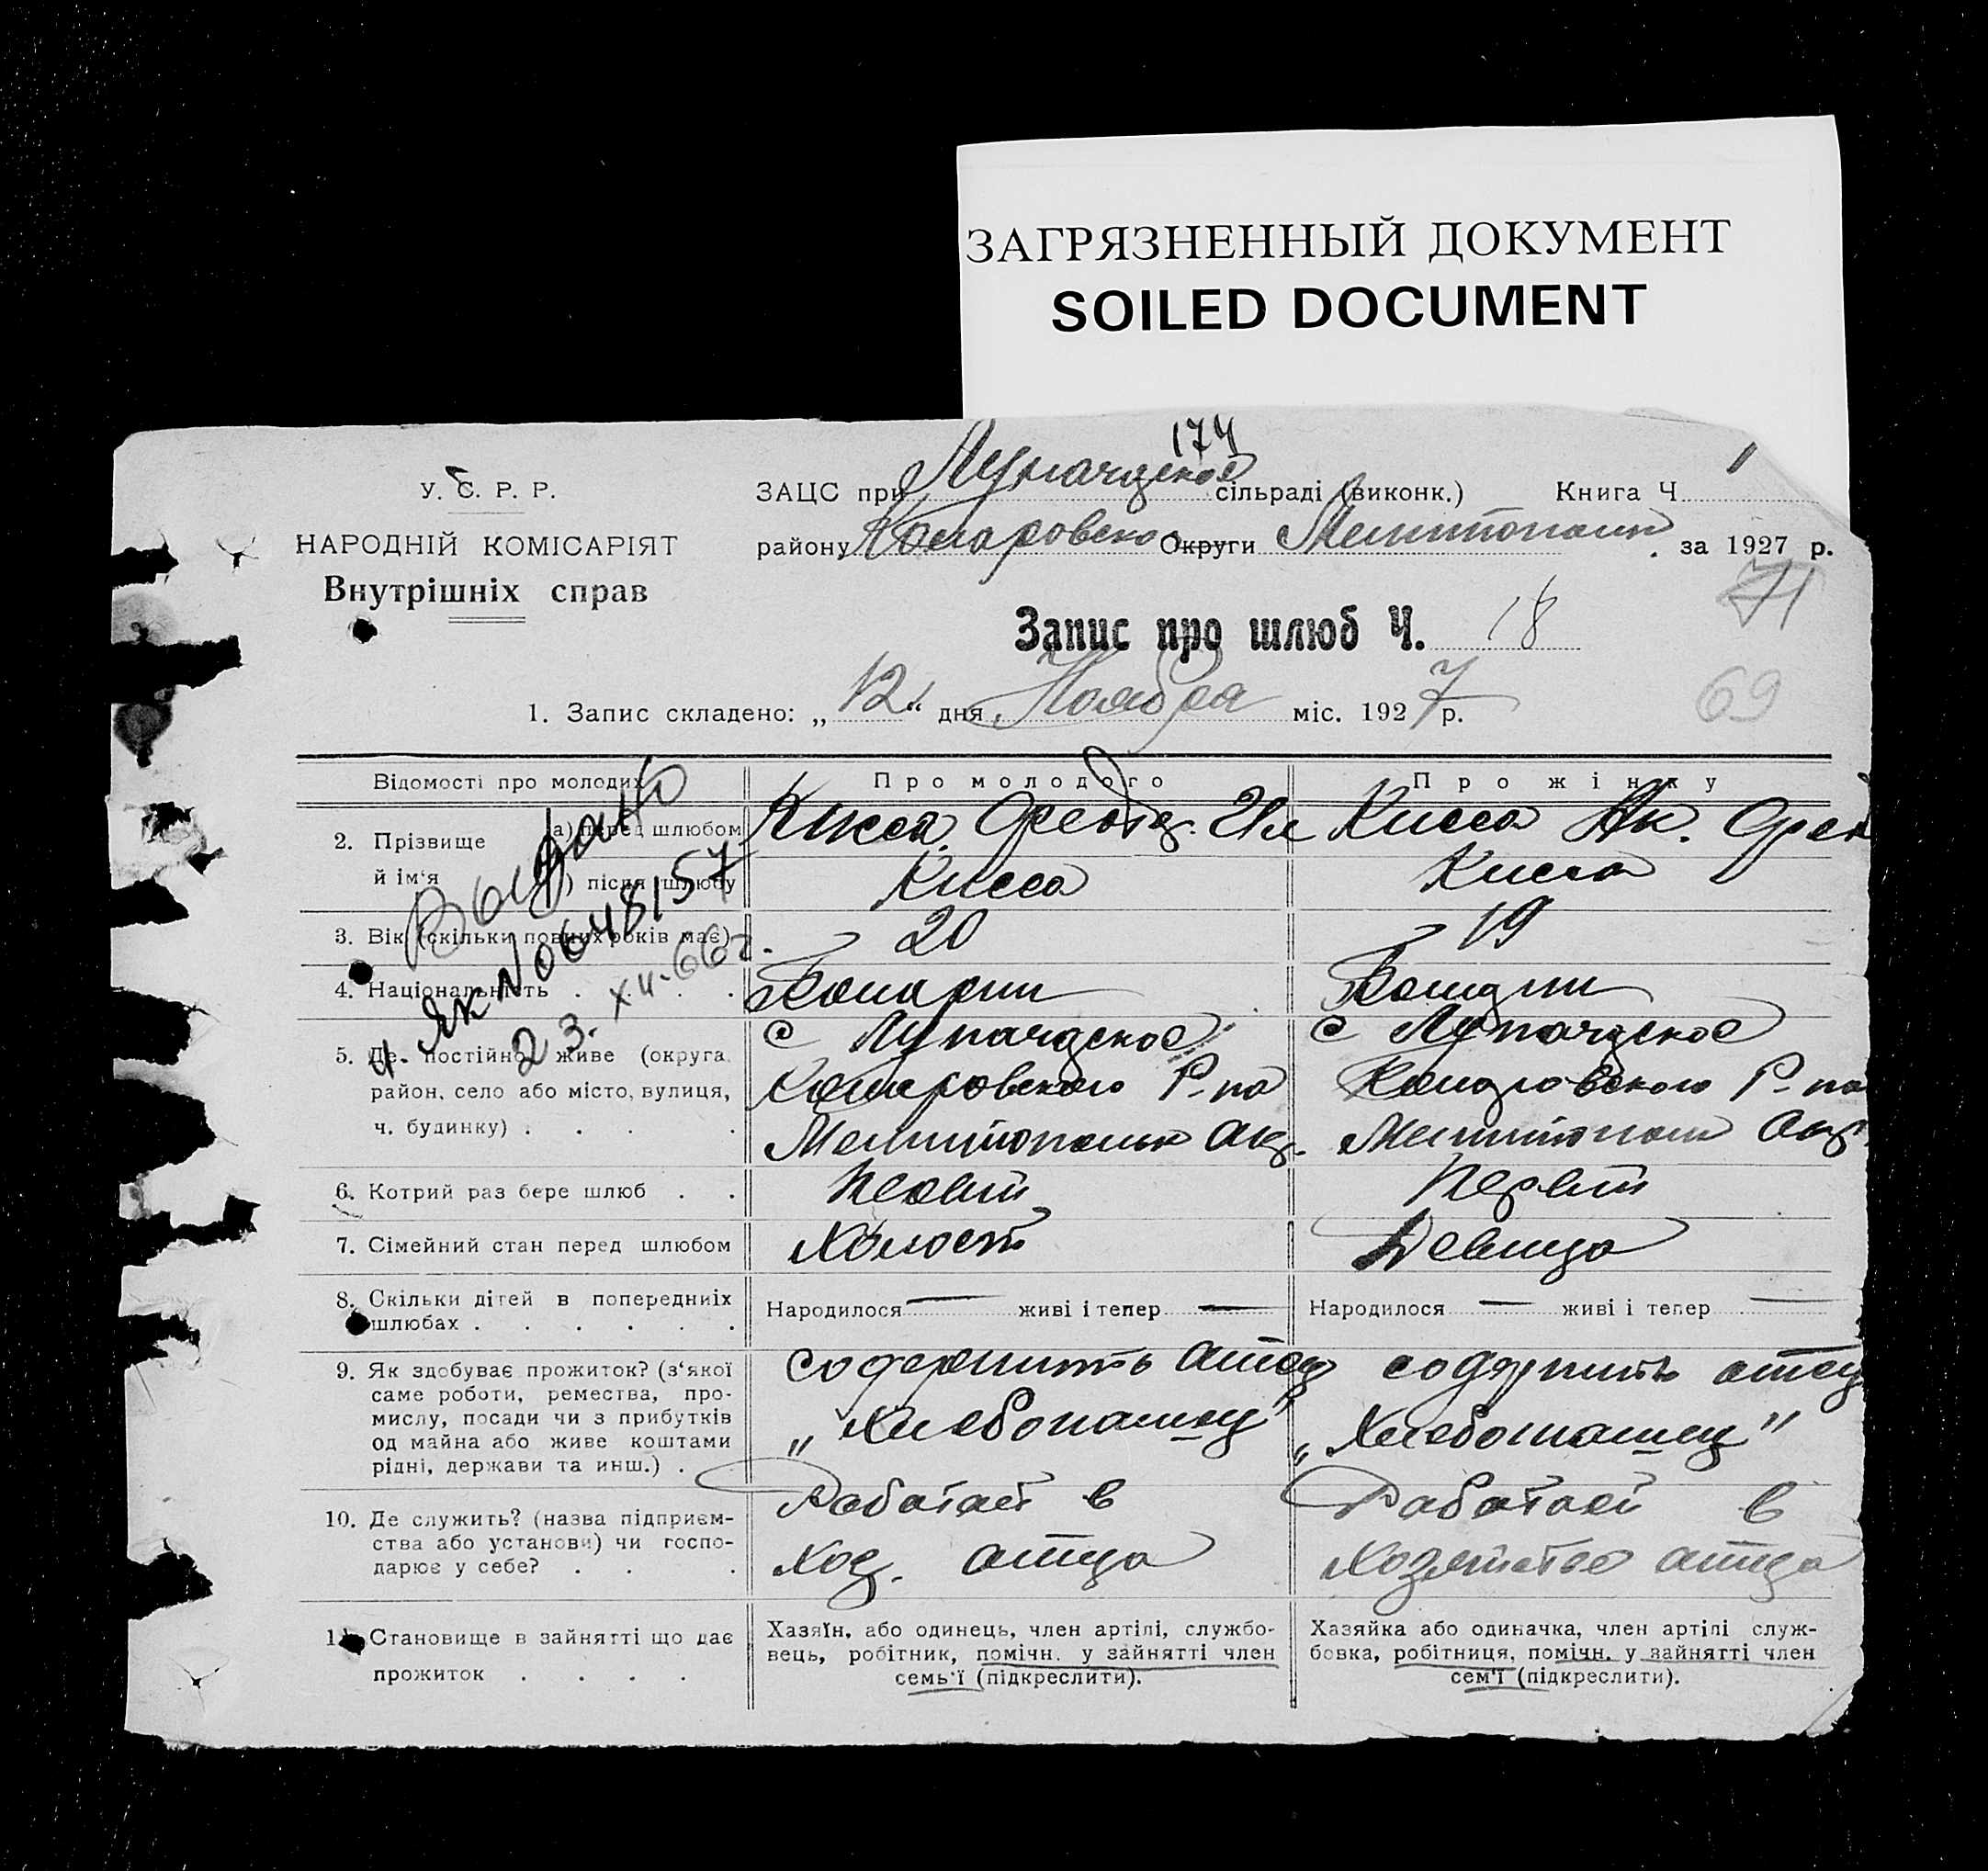 ЗАГРЯЗНЕННЫЙ ДОКУМЕНТ
SOILED DOCUMENT
174
У. С. Р. Р.
НАРОДНІЙ КОМІСАРІЯТ
Внутрішніх справ
ЗАЦС при сільраді (виконк.) Книга Ч. 1
району Округи за 1927 р.
71
Запис про шлюб Ч. 18
69
1. Запис складено: „12“ дня Ноября міс. 1927 р.
Відомості про молодих Про молодого Про жінку
2. Прізвище й ім‘я
а) перед шлюбом Кисса Кисса Ак.
) після шлюбу Кисса Кисса
3. Вік (скільки повних років має) 20 19
4. Національність
5. Де постійно живе (округа, район, село або місто, вулиця, ч. будинку)
с с
Р-на Р-на
Окр. Окр.
6. Котрий раз бере шлюб Первий Первий
7. Сімейний стан перед шлюбом Холост Девица
8. Скільки дітей в попередниіх шлюбах Народилося — живі і тепер — Народилося — живі і тепер —
9. Як здобуває прожиток? (з‘якої саме роботи, ремества, промислу, посади чи з прибутків од майна або живе коштами рідні, держави та инш.)
содержить отец содержить отец
„Хлебопашец“ „Хлебопашец“
10. Де служить? (назва підприємства або установи) чи господарює у себе?
Работает в Работает в
Хоз. отца отца
1 . Становище в зайнятті що дає прожиток
Хазяїн, або одинець, член артілі, службовець, робітник, помічн. у зайнятті член семь‘ї (підкреслити).
Хазяйка або одиначка, член артілі службовка, робітниця, помічн. у зайнятті член сем‘ї (підкреслити).
Выдано
Як N 0648157
23. XII-66 г.